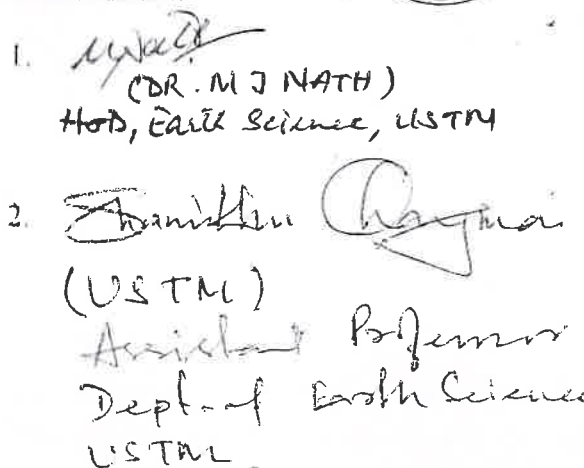 1.
(DR. M J NATH)
HoD, Earth Science, USTM
2.
(USTM)
Assistant Professor
Dept. of Earth Science
USTM